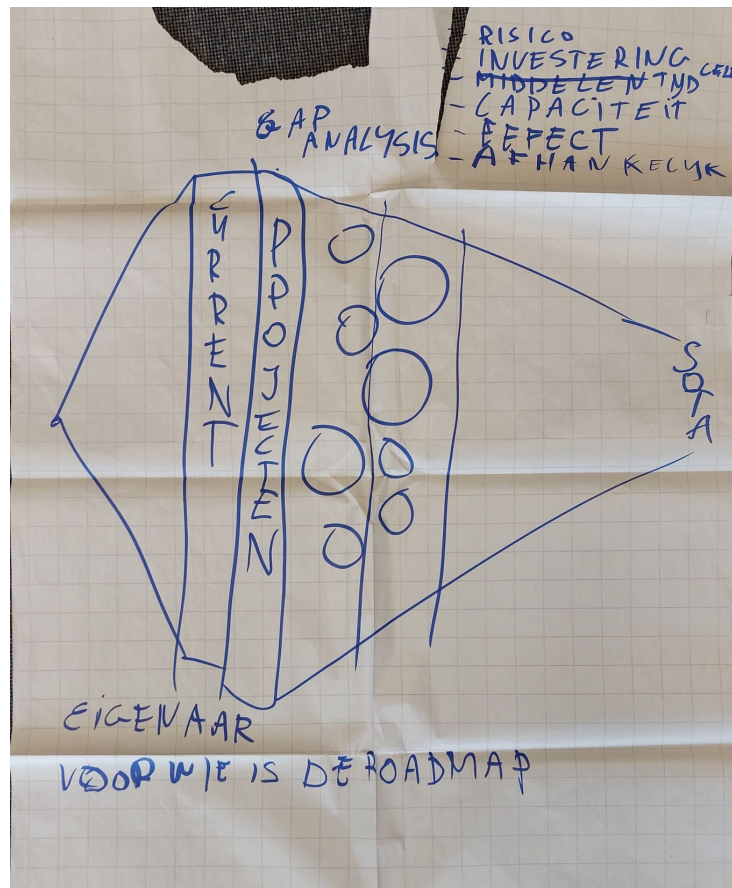 - RISICO
- INVESTERING
- MIDDELEN TYD GELD
- CAPACITEIT
- EFFECT
- AFHANKELYK
GAP
ANALYSIS
CURRENT
PPOJECTEN
SOTA
EIGENAAR
VOOR WIE IS DE ROADMAP